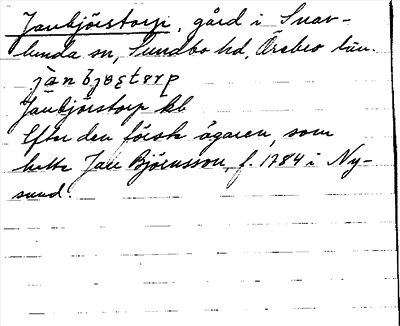 Janbjörstorp, gård i Snav-
lunda sn, Sundbo hd, Örebro län.
jànbjøstɔrp
Janbjorstorp kb
Efter den förste ägaren, som
hette Jan Björnsson, f. 1784 i Ny-
sund.